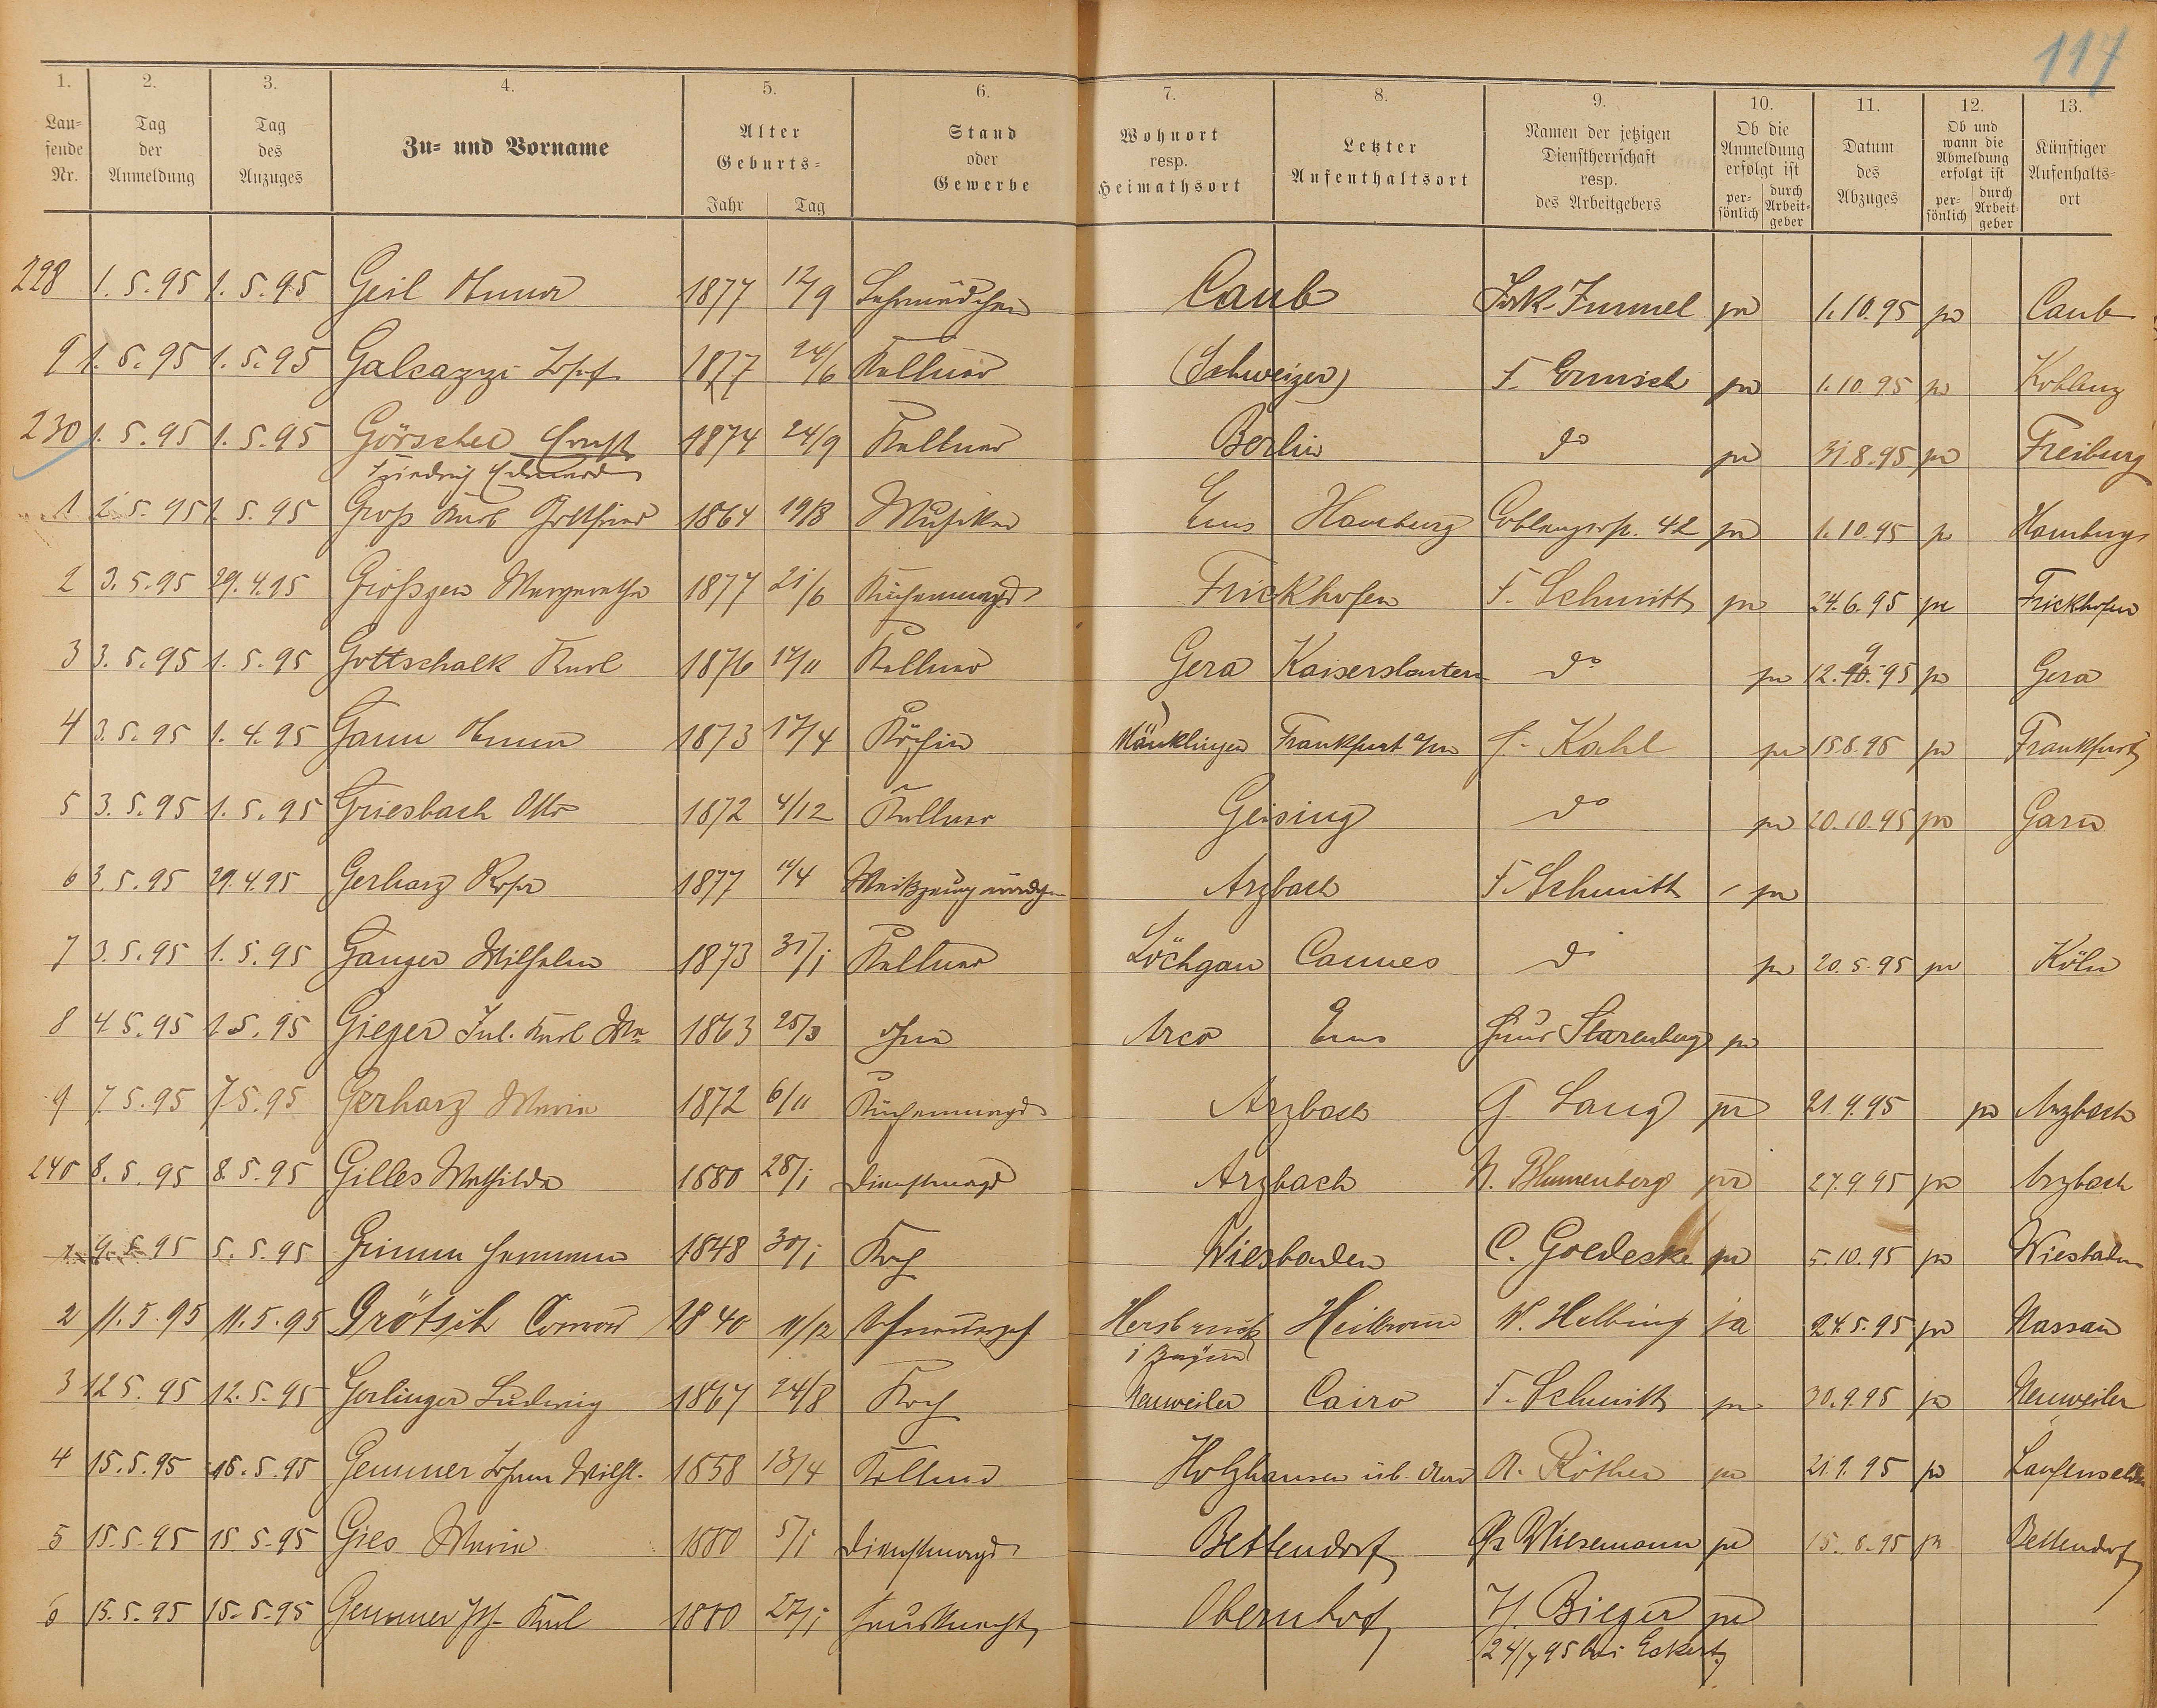 117
1. 2. 3. 4. 5. 6. 7. 8. 9. 10. 11. 12. 13.
Lau=
fende
Nr.
Tag
der
Anmeldung
Tag
des
Anzuges
Zu= und Vorname
Alter
Geburts=
Jahr Tag
Stand
oder
Gewerbe
Wohnort
resp.
Heimathsort
Letzter
Aufenthaltsort
Namen der jetzigen
Dienstherrschaft
resp.
des Arbeitgebers
Ob die
Anmeldung
erfolgt ist
per=
sönlich
durch
Arbeit=
geber
Datum
des
Abzuges
Ob und
wann die
Abmeldung
erfolgt ist
per=
sönlich
durch
Arbeit=
geber
Künftiger
Aufenhalts=
ort
228 1.5.95 1.5.95 Geil Anna 1877 12/9 Lehrmädchen Caub Immel ja 1.10.95 ja Caub
9 1.5.95 1.5.95 Galeazzi Josef 1877 24/6 Kellner (Schweizer) F. Ermisch ja 1.10.95 ja Koblenz
230 1.5.95 1.5.95 Görschel Ernst 1874 24/9 Kellner Berlin do ja 31.8.95 ja Freiburg
Friedrich Eduard
1 2.5.95 1.5.95 Groß Karl Gottfried 1864 19/8 Musiker Ems Hamburg Coblenzerstr. 42 ja 1.10.95 ja Hamburg
2 3.5.95 29.4.95 Größgen Margarethe 1877 21/6 Küchenmagd Frickhofen F. Schmitt ja 24.6.95 ja Frickhofen
3 3.5.95 1.5.95 Gottschalk Karl 1876 17/11 Kellner Gera Kaiserslautern do ja 12.9.95 ja Gera
4 3.5.95 1.4.95 Gann Anna 1873 17/4 Köchin Mänklingen Frankfurt a/m Kahl ja 15.8.95 ja Frankfurt
5 3.5.95 1.5.95 Griesbach Otto 1872 4/12 Kellner Geising do ja 20.10.95 ja
6 3.5.95 29.4.95 Gerharz Rosa 1877 /4 Weißzeugmädchen Arzbach F. Schmitt ja
7 3.5.95 1.5.95 Ganzer Wilhelm 1873 31/1 Kellner Löchgau Cannes do ja 20.5.95 ja Köln
8 4.5.95 1.5.95 Gieger Jul. Karl 1863 25/3 ohne Arco Ems Haus Starenberg ja
9 7.5.95 7.5.95 Gerharz Maria 1872 6/11 Küchenmagd Arzbach G. Lang ja 21.9.95 ja Arzbach
240 8.5.95 8.5.95 Gilles Mathilde 1880 28/1 Dienstmagd Arzbach N. Blumenberg ja 27.9.95 ja Arzbach
1 9.5.95 5.5.95 Grimm Hermann 1848 30/1 Koch Wiesbaden C. Goedecke ja 5.10.95 ja Wiesbaden
2 11.5.95 11.5.95 Grötsch Conrad 1840 11/12 Hersbruck Heilbronn W. Helbing ja 24.5.95 ja Nassau
i Bayern
3 12.5.95 12.5.95 Gerlinger Ludwig 1867 24/8 Koch Neuweiler Cairo F. Schmitt ja 30.9.95 ja Neuweiler
4 15.5.95 15.5.95 Gemmer Johann Wilh. 1858 13/4 Kellner Holzhausen üb. Aar A. Röther ja 21.9.95 ja Laufenselden
5 15.5.95 15.5.95 Gies Maria 1880 5/1 Dienstmagd Bettendorf Wiesemann ja 15.8.95 ja Bettendorf
6 15.5.95 15.5.95 Gemmer Karl 1880 27/1 Hausknecht Obernhof H. Bieger ja
24/7 95 bei Eckert